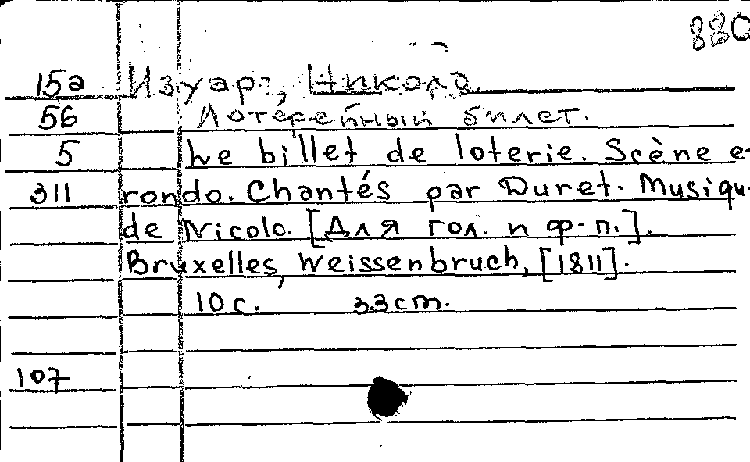 880
15a Изуар, Никола.
56 Лотерейный билет.
5 Le billet de loterie. Scène e
311 rondo. Chantés par Duret. Musiqu
de Nicolo. [Для гол. и ф-п.].
Bruxelles, Weissenbruch, [1811].
10 с. 33 cm.
107